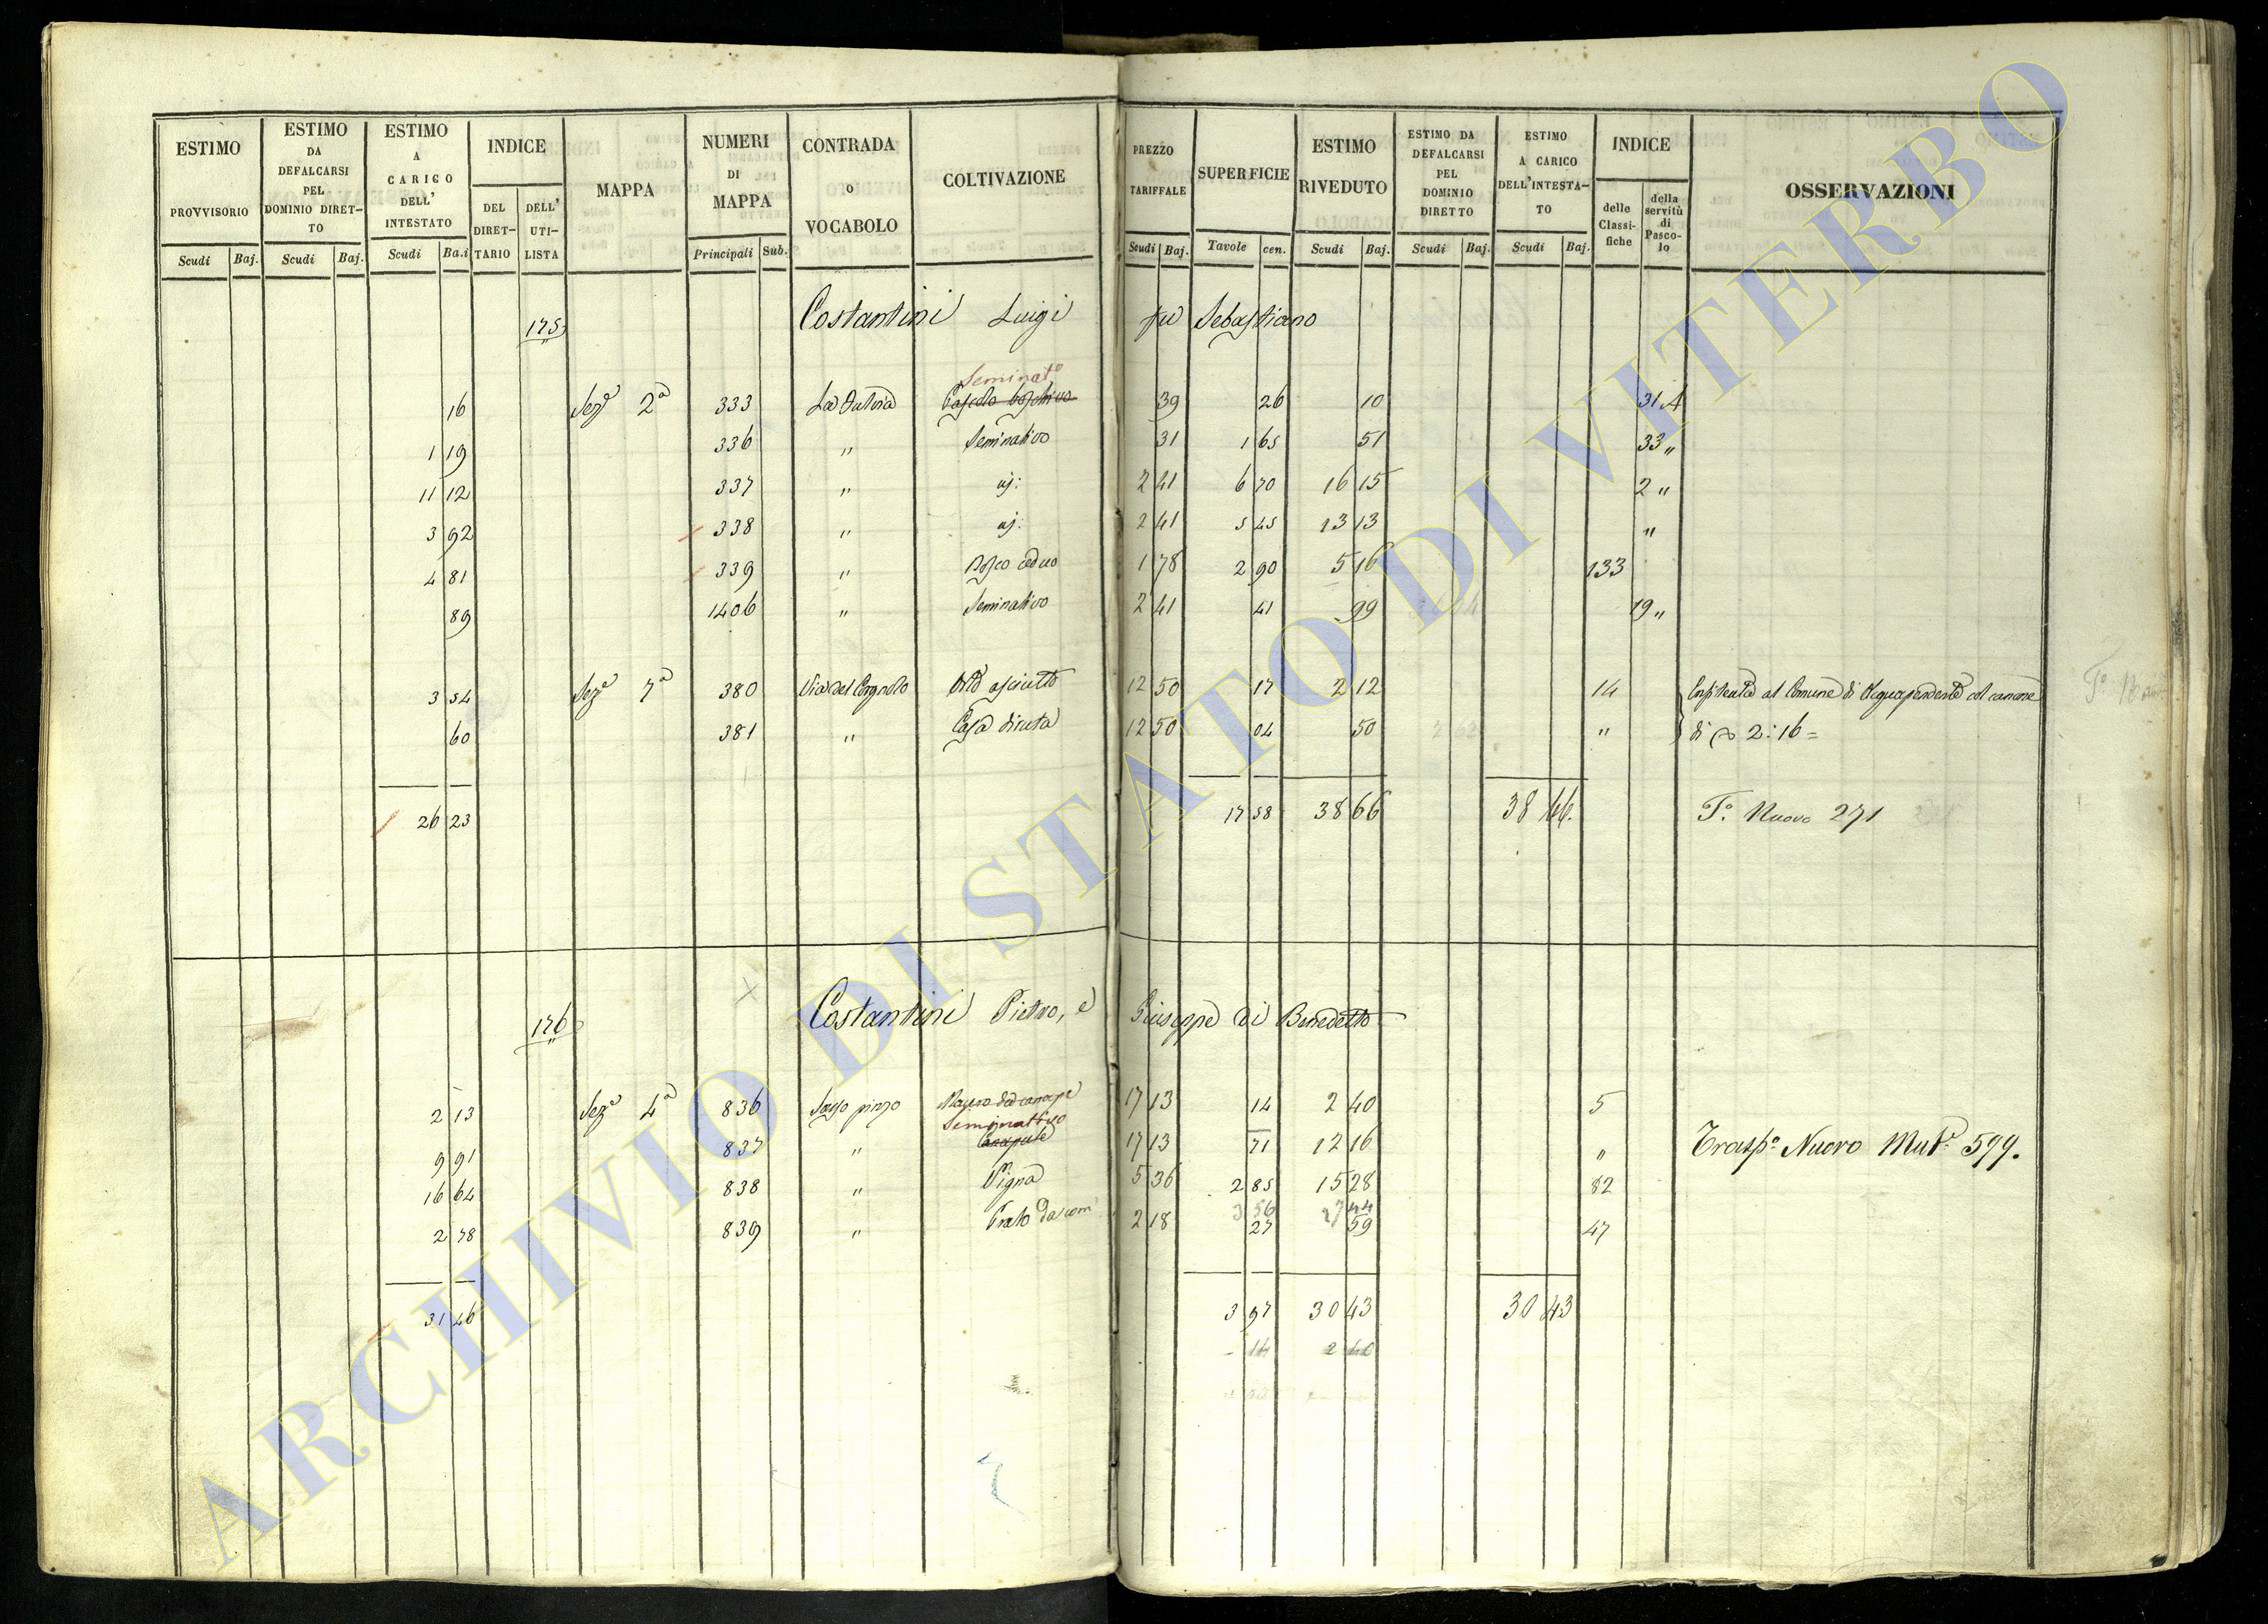 ESTIMO PROVVISORIO Scudi Baj.
ESTIMO DA DEFALCARSI PEL DOMINIO DIRET-TO Scudi Baj.
ESTIMO A CARICO DELL' INTESTATO Scudi Ba.i
INDICE DEL DIRET-TARIO DELL' UTI-LISTA
MAPPA
NUMERI DI MAPPA Principali Sub.
CONTRADA O VOCABOLO
COLTIVAZIONE
PREZZO TARIFFALE Scudi Baj.
SUPERFICIE Tavole cen.
ESTIMO RIVEDUTO Scudi Baj.
ESTIMO DA DEFALCARSI PEL DOMINIO DIRETTO Scudi Baj.
ESTIMO A CARICO DELL'INTESTA-TO Scudi Baj.
INDICE delle Classi-fiche della servitù di Pasco-lo
OSSERVAZIONI
175 Costantini Luigi fu Sebastiano
Seminato
16 Sez.e 2a 333 Pascolo boschivo 39 26 10 31 A
1 19 336 " Seminativo 31 1 65 51 33 "
11 12 337 " 2 41 6 70 16 15 2 "
3 92 338 " 2 41 5 45 13 13 "
4 81 339 " Bosco ceduo 1 78 2 90 5 16 133
89 1406 " Seminativo 2 41 41 99 19 "
3 54 Sez.e 7a 380 Via del Corgnolo Orto asciutto 12 50 17 2 12 14 Enfiteutica al Comune di Acquapendente col canone
60 381 " Casa diruta 12 50 04 50 " di 2:16=
26 23 17 58 38 66 38 66. T.o Nuovo 271
176 Costantini Pietro, e Giuseppe di Benedetto
2 13 Sez.e 4a 836 Sasso pinzo Macero da canape 17 13 14 2 40 5
Seminativo
9 91 837 " Canapule 17 13 71 12 16 " Trasp.o Nuovo Mut.e 599.
16 64 838 " Vigna 5 36 2 85 15 28 82
3 56 27 44
2 78 839 " Prato da com 2 18 27 59 47
31 46 3 97 30 43 30 43
14 2 40
ARCHIVIO DI STATO DI VITERBO